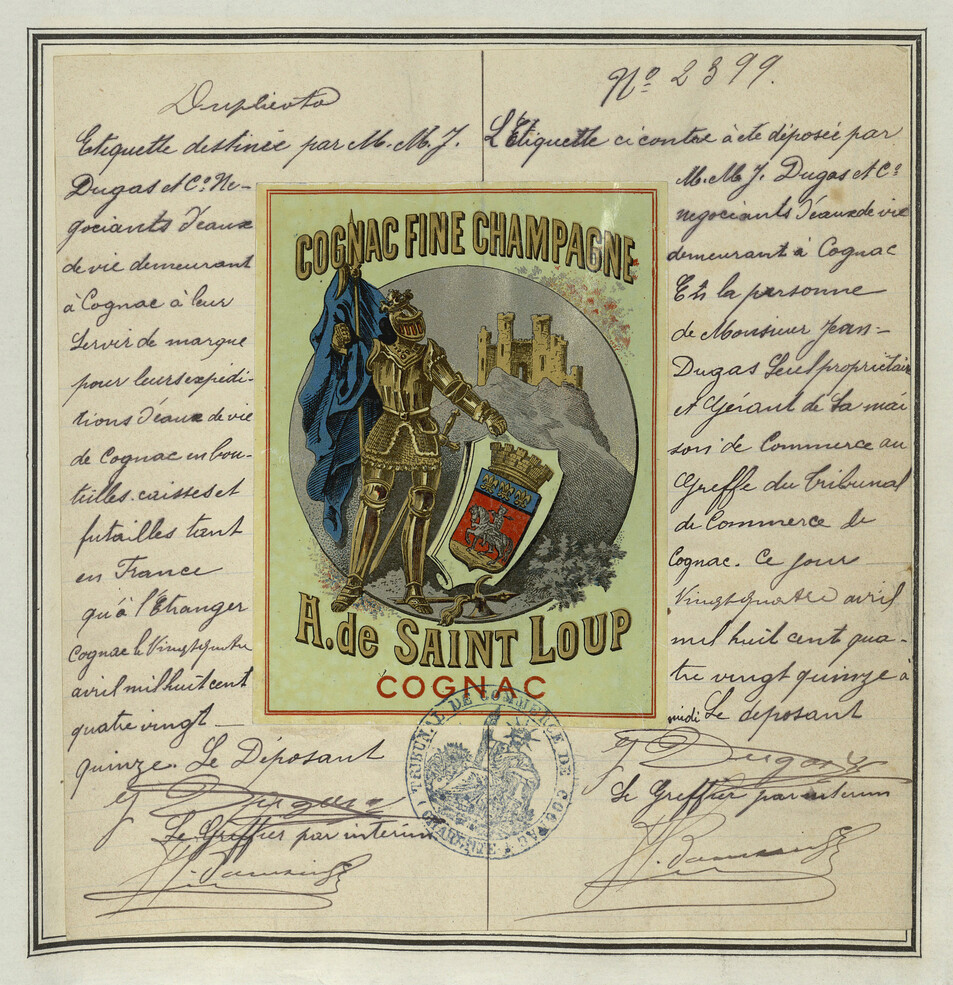 Duplicata
Etiquette destinée par M. M. J.
Dugas et Cº Né-
gociants d'eaux
de vie demeurant
à Cognac à leur
servir de marque
pour leurs expédi-
tions d'eaux de vie
de Cognac en bou-
teilles caisses et
futailles tant
en France
qu'à l'Etranger
Cognac le Vingt quatre
avril mil huit cent
quatre vingt
quinze. Le Déposant
J Dugas
Le Greffier par interim
COGNAC FINE CHAMPAGNE
A. de SAINT LOUP
COGNAC
TRIBUNAL DE COMMERCE DE COGNAC
(CHARENTE)
Nº 2399.
L'Etiquette ci contre à été déposée par
M. M. J. Dugas et Cº
negociants d'eaux de vie
demeurant à Cognac
En la personne
de Monsieur Jean
Dugas Seul propriétaire
et Gérant de sa mai
son de Commerce au
Greffe du Tribunal
de Commerce de
Cognac. Ce jour
Vingt quatre avril
mil huit cent qua-
tre vingt quinze à
midi Le deposant
J Dugas
Le Greffier par interim